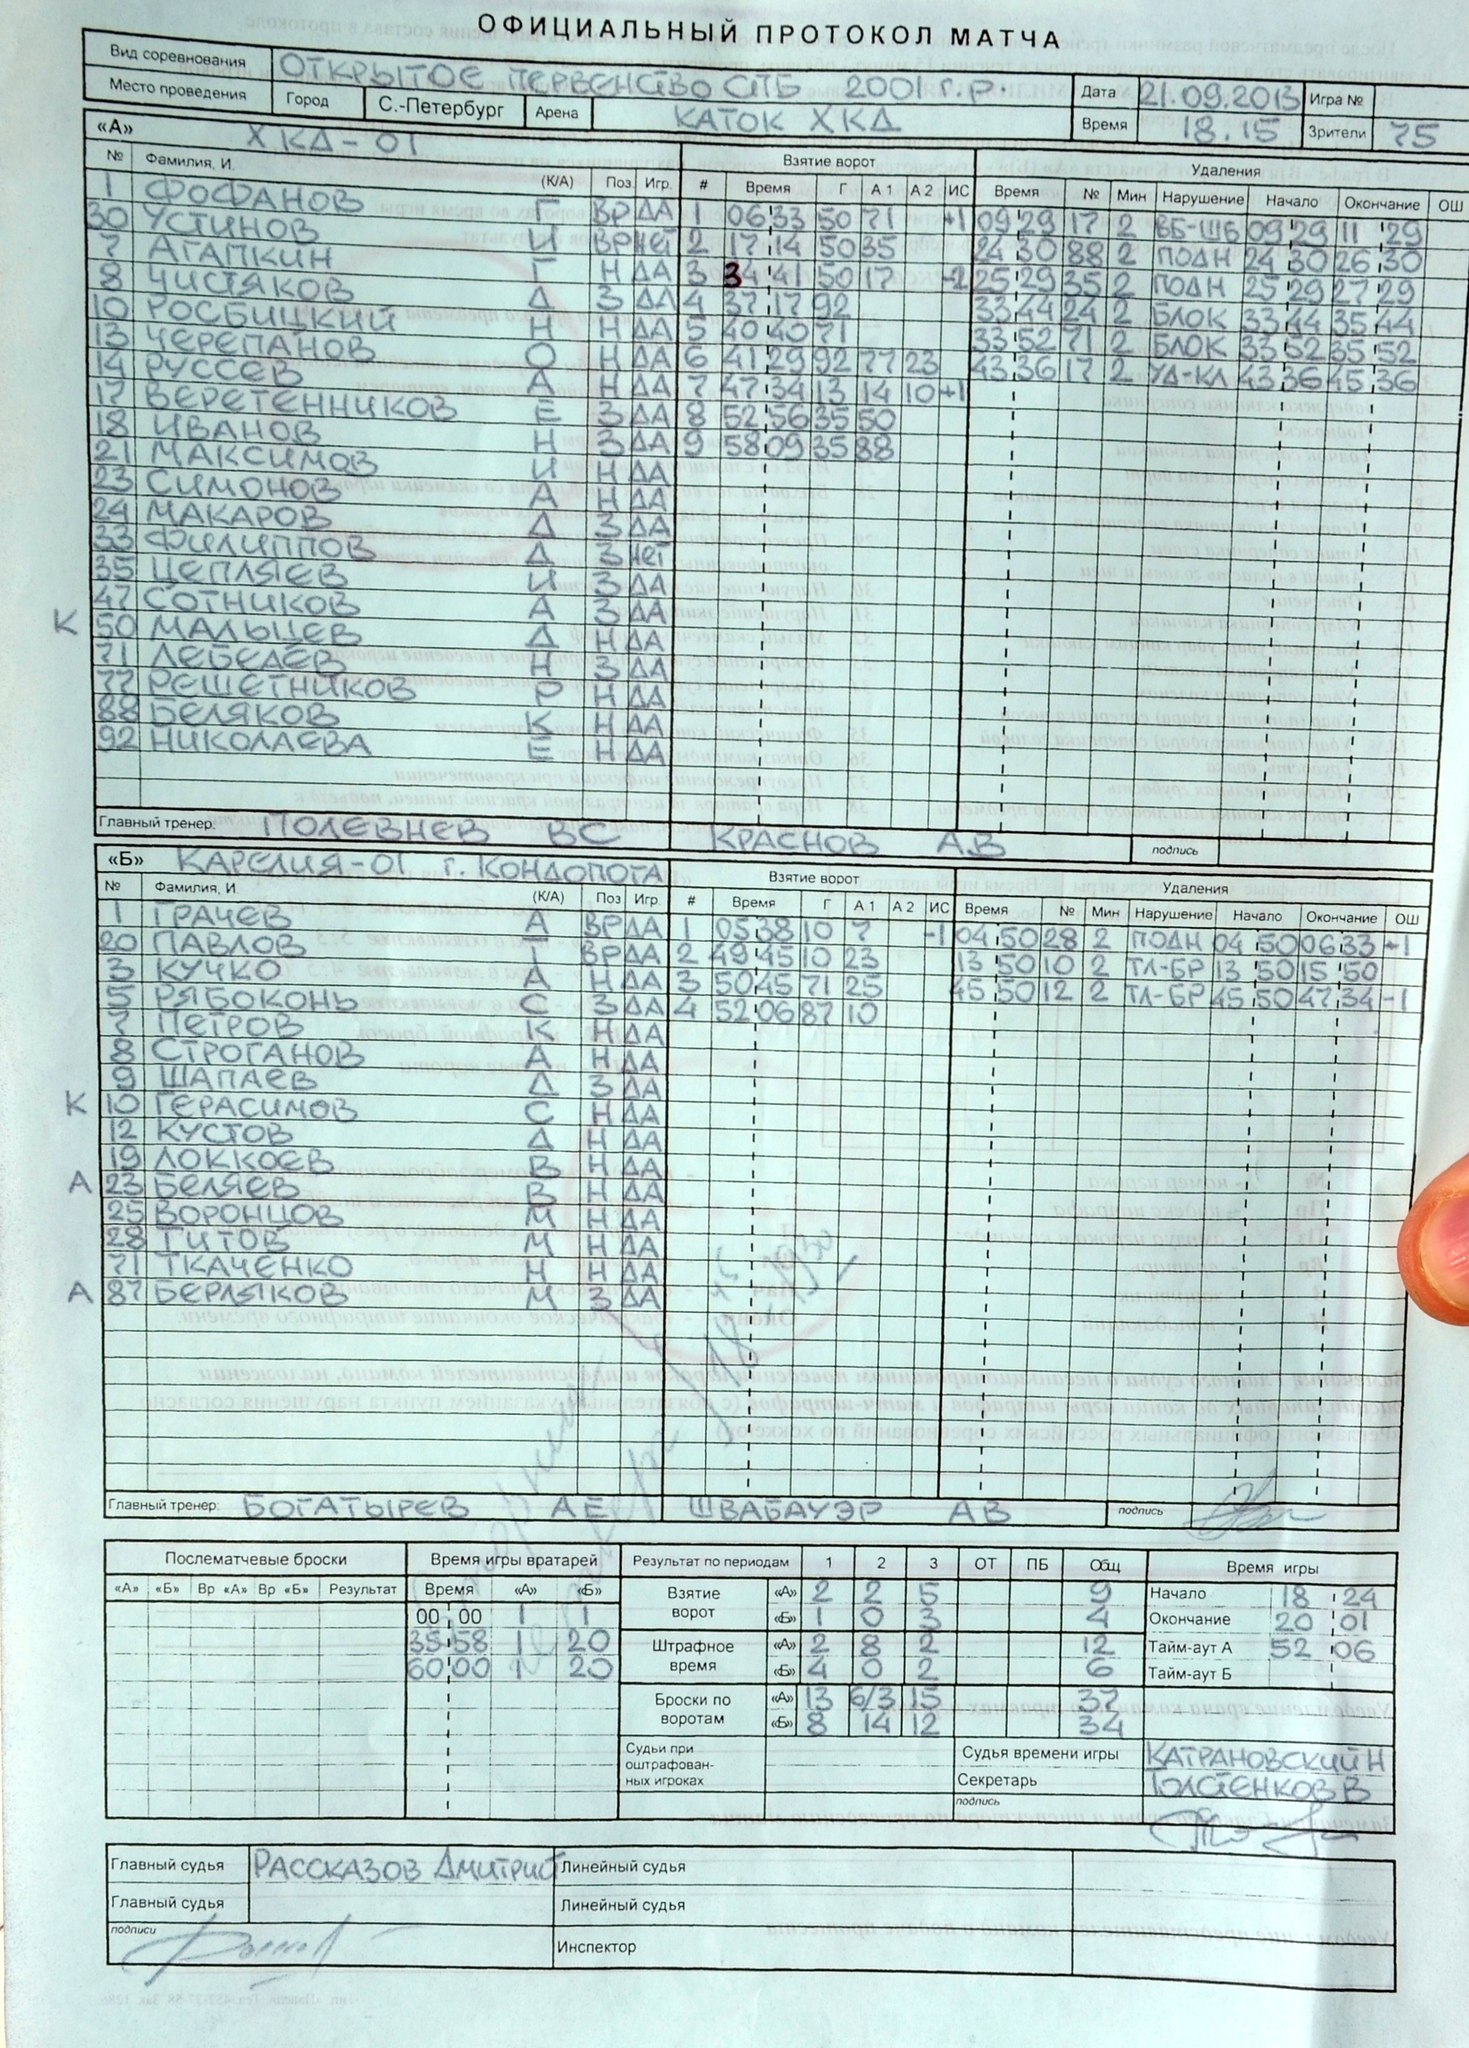 ОФИЦИАЛЬНЫЙ ПРОТОКОЛ МАТЧА
Вид соревнования ОТКРЫТОЕ ПЕРВЕНСТВО СПБ 2001 г.р. Дата 21.09.2013 Игра №
Место проведения Город С.-Петербург Арена КАТОК ХКД Время 18.15 Зрители 75
«А» ХКД-01 Взятие ворот Удаления
№ Фамилия, И. (К/А) Поз Игр. # Время Г А 1 А 2 ИС Время № Мин Нарушение Начало Окончание ОШ
1 ФОФАНОВ Г ВР ДА 1 06 33 50 71 +1 09 29 17 2 ВБ-ШБ 09 29 11 29
30 УСТИНОВ Г ВР НЕТ 2 17 14 50 35 24 30 88 2 ПОДН 24 30 26 30
7 АГАПКИН Г Н ДА 3 34 41 50 17 -2 25 29 35 2 ПОДН 25 29 27 29
8 ЧИСТЯКОВ Д З ДА 4 37 17 92 33 44 24 2 БЛОК 33 44 35 44
10 РОСБИЦКИЙ Н Н ДА 5 40 40 71 33 52 71 2 БЛОК 33 52 35 52
13 ЧЕРЕПАНОВ О Н ДА 6 41 29 92 77 23 43 36 17 2 УД-КЛ 43 36 45 36
14 РУССЕВ А Н ДА 7 47 34 13 14 10 +1
17 ВЕРЕТЕННИКОВ Е З ДА 8 52 56 35 50
18 ИВАНОВ Н З ДА 9 58 09 35 88
21 МАКСИМОВ И Н ДА
23 СИМОНОВ А Н ДА
24 МАКАРОВ Д З ДА
33 ФИЛИППОВ Д З НЕТ
35 ЦЕПЛЯЕВ И З ДА
47 СОТНИКОВ А З ДА
К 50 МАЛЬЦЕВ Д Н ДА
71 ЛЕБЕДЕВ Н З ДА
77 РЕШЕТНИКОВ Р Н ДА
88 БЕЛЯКОВ К Н ДА
92 НИКОЛАЕВА Е Н ДА
Главный тренер: ПОЛЕВНЕВ ВС КРАСНОВ А.В подпись
«Б» КАРЕЛИЯ-01 г. КОНДОПОГА Взятие ворот Удаления
№ Фамилия, И. (К/А) Поз Игр. # Время Г А 1 А 2 ИС Время № Мин Нарушение Начало Окончание ОШ
1 ГРАЧЕВ А ВР ДА 1 05 38 10 7 -1 04 50 28 2 ПОДН 04 50 06 33 -1
20 ПАВЛОВ Г ВР ДА 2 49 45 10 23 13 50 10 2 ТЛ-БР 13 50 15 50
3 КУЧКО А Н ДА 3 50 45 71 25 45 50 12 2 ТЛ-БР 45 50 47 34 -1
5 РЯБОКОНЬ С З ДА 4 52 06 87 10
7 ПЕТРОВ К Н ДА
8 СТРОГАНОВ А Н ДА
9 ШАПАЕВ Д З ДА
К 10 ГЕРАСИМОВ С Н ДА
12 КУСТОВ Д Н ДА
19 ЛОККОЕВ В Н ДА
А 23 БЕЛЯЕВ В Н ДА
25 ВОРОНЦОВ М Н ДА
28 ТИТОВ М Н ДА
71 ТКАЧЕНКО Н Н ДА
А 87 БЕРЛЯКОВ М З ДА
Главный тренер: БОГАТЫРЕВ АЕ ШВАБАУЭР АВ подпись
Послематчевые броски Время игры вратарей Результат по периодам 1 2 3 ОТ ПБ Общ Время игры
«А» «Б» Вр «А» Вр «Б» Результат Время «А» «Б»
00 00 1 1
35 58 1 20
60 00 1 20
Взятие ворот «А» 2 2 5 9 Начало 18 24
«Б» 1 0 3 4 Окончание 20 01
Штрафное время «А» 2 8 2 12 Тайм-аут А 52 06
«Б» 4 0 2 6 Тайм-аут Б
Броски по воротам «А» 13 6/3 15 37
«Б» 8 14 12 34
Судьи при оштрафован-ных игроках Судья времени игры КАТРАНОВСКИЙ Н
Секретарь ТОЛСТЕНКОВ В
подпись
Главный судья РАССКАЗОВ ДМИТРИЙ Линейный судья
Главный судья Линейный судья
подписи Инспектор